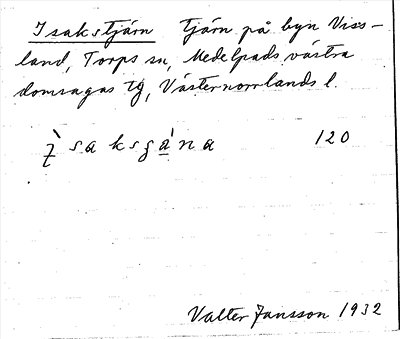 Isakstjärn Tjärn på byn Viss-
land, Torps sn, Medelpads västra
domsagas tg, Västernorrlands l.
120
Valter Jansson 1932